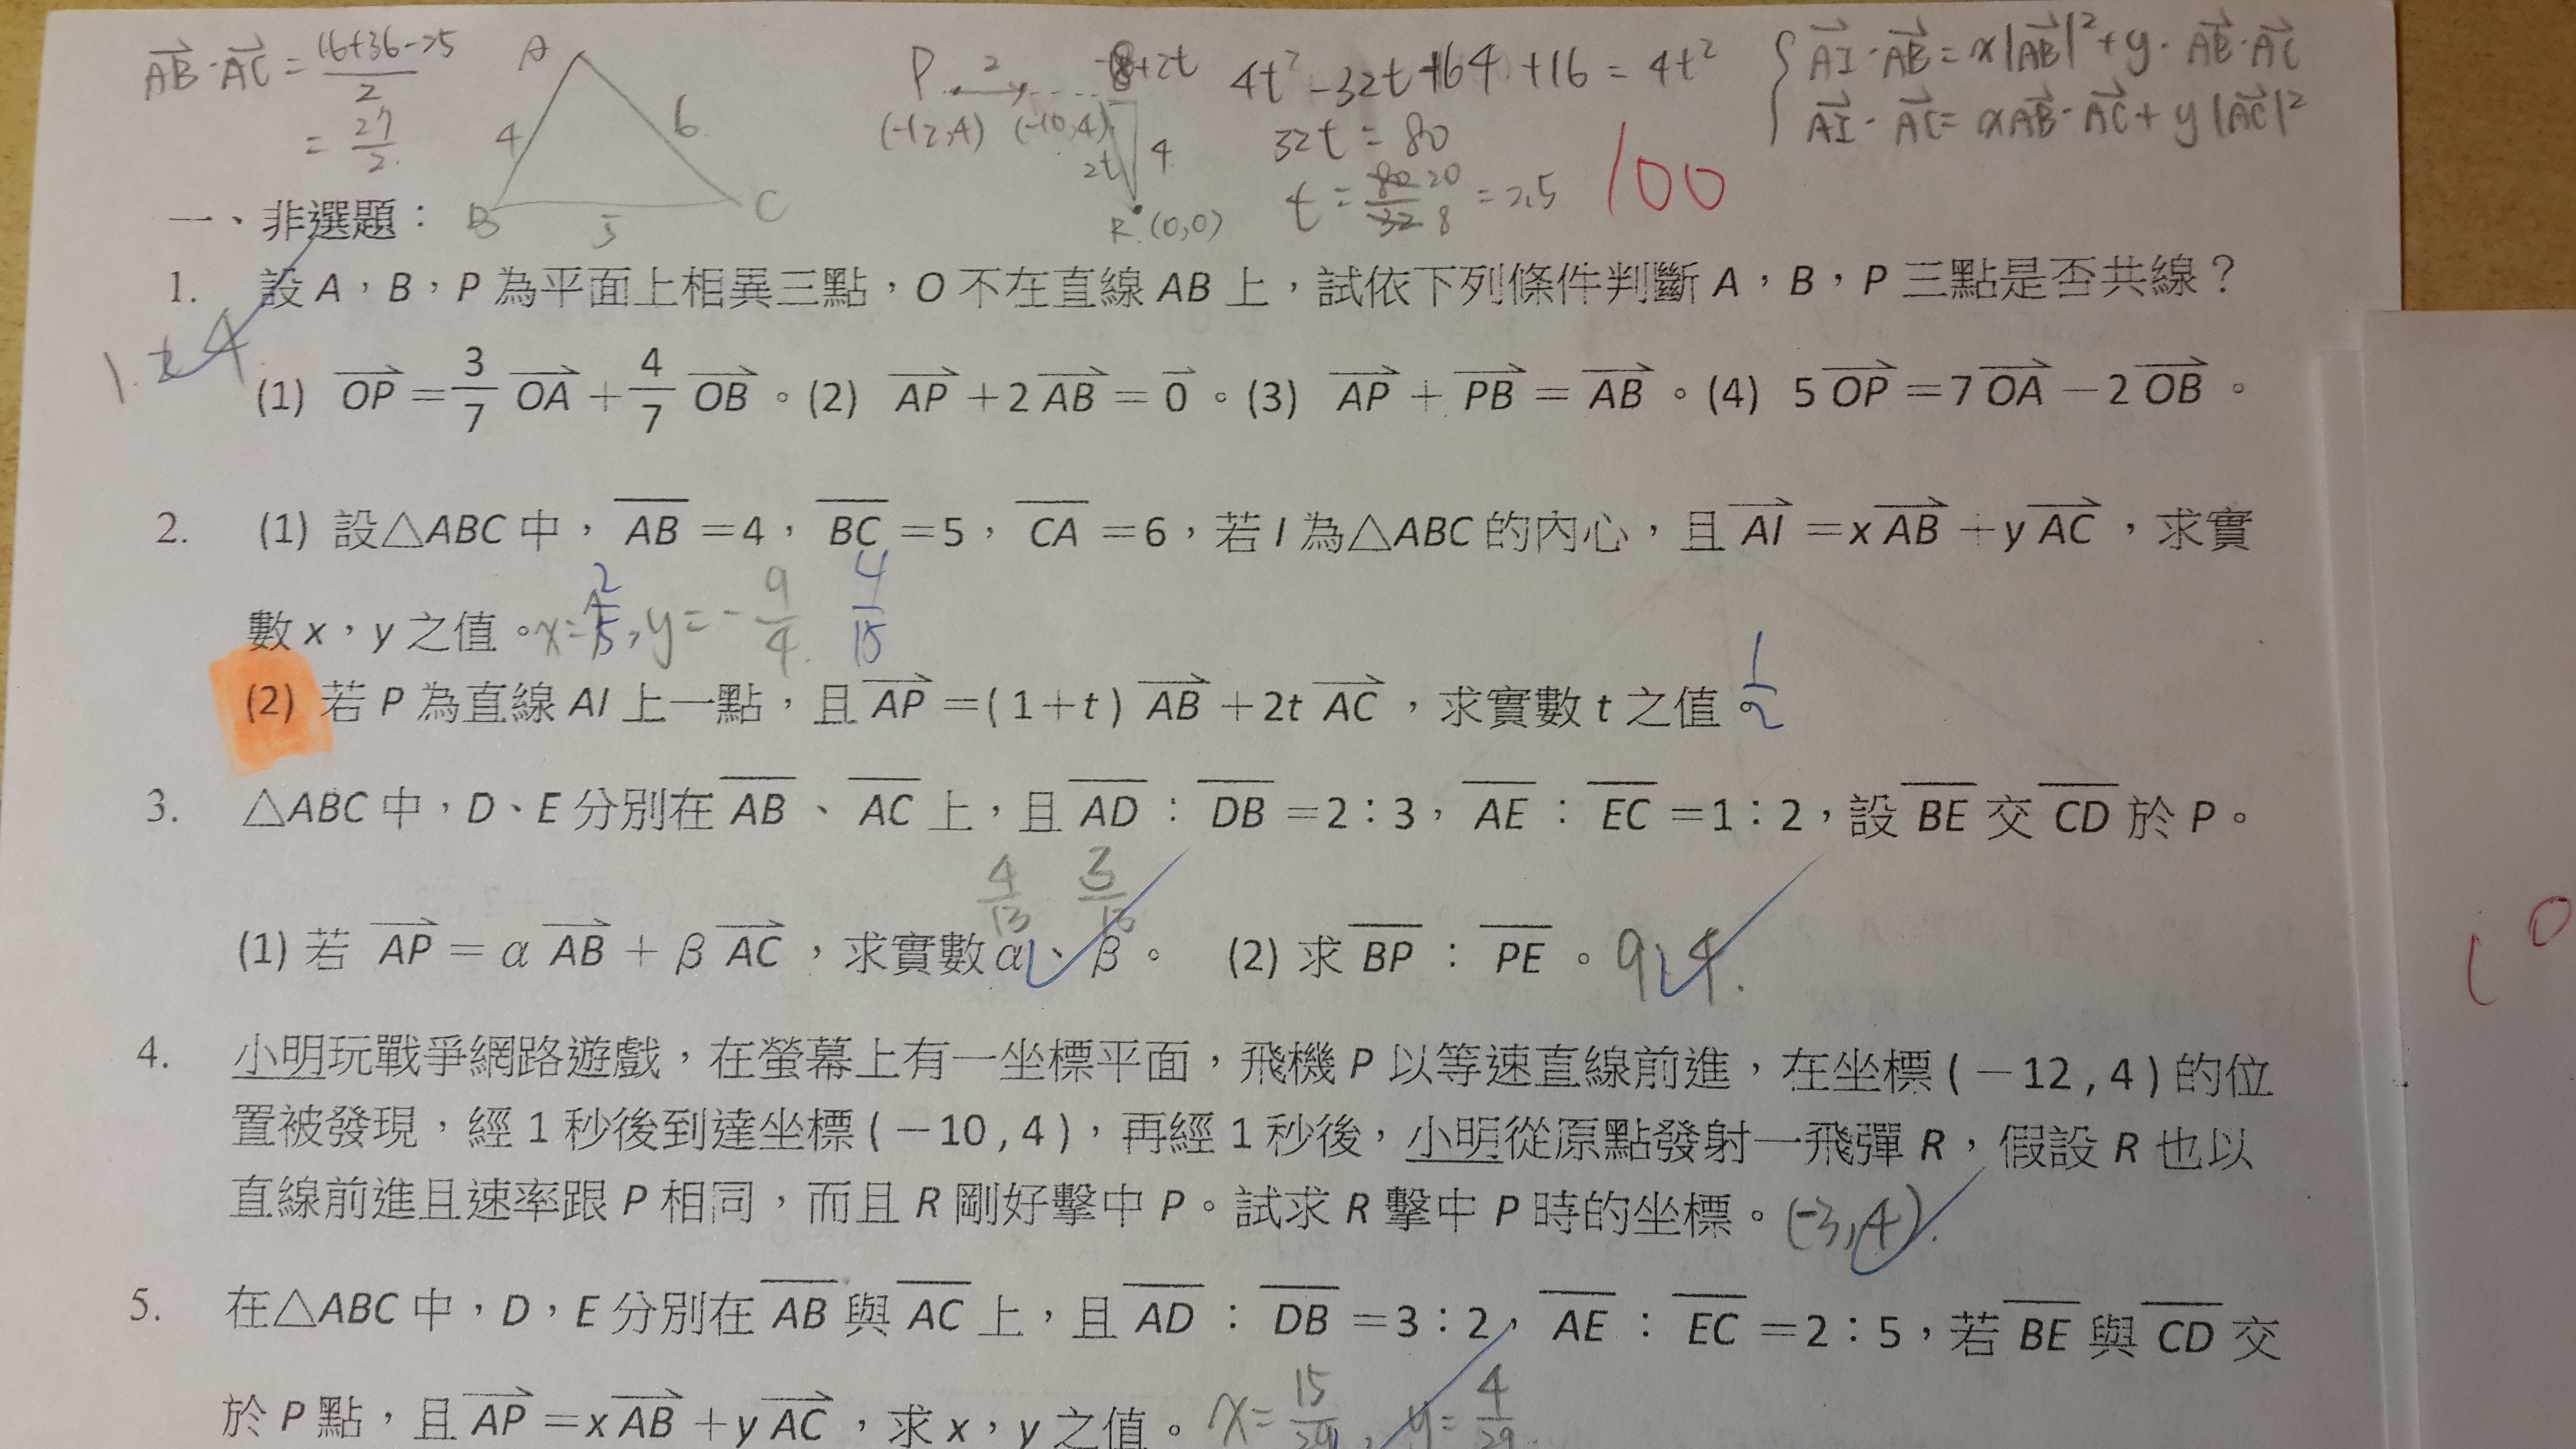 AB·AC = (16+36-25)/2
= 27/2
A
4
6
B
5
C
P 2 -8+2t
(-12,4) (-10,4)
2t 4
R (0,0)
4t²-32t+64+16=4t²
32t=80
t = 80/32 20/8 = 2.5
100
AI·AB = x|AB|²+y·AB·AC
AI·AC = xAB·AC+y|AC|²
一、非選題：
1. 設 A，B，P 為平面上相異三點，O 不在直線 AB 上，試依下列條件判斷 A，B，P 三點是否共線？
(1) OP = 3/7 OA + 4/7 OB 。(2) AP + 2 AB = 0 。(3) AP + PB = AB 。(4) 5 OP = 7 OA − 2 OB 。
2. (1) 設△ABC 中，AB = 4，BC = 5，CA = 6，若 I 為△ABC 的內心，且 AI = x AB + y AC，求實
數 x，y 之值。x= 2/5, y= -9/4 4/15
(2) 若 P 為直線 AI 上一點，且 AP = (1+t) AB + 2t AC，求實數 t 之值。1/2
3. △ABC 中，D、E 分別在 AB、AC 上，且 AD：DB = 2：3，AE：EC = 1：2，設 BE 交 CD 於 P。
4/13 3/13
(1) 若 AP = α AB + β AC，求實數 α、β。 (2) 求 BP：PE。9:4.
4. 小明玩戰爭網路遊戲，在螢幕上有一坐標平面，飛機 P 以等速直線前進，在坐標 (−12 , 4) 的位
置被發現，經 1 秒後到達坐標 (−10 , 4)，再經 1 秒後，小明從原點發射一飛彈 R，假設 R 也以
直線前進且速率跟 P 相同，而且 R 剛好擊中 P。試求 R 擊中 P 時的坐標。(-3,4).
5. 在△ABC 中，D，E 分別在 AB 與 AC 上，且 AD：DB = 3：2，AE：EC = 2：5，若 BE 與 CD 交
於 P 點，且 AP = x AB + y AC，求 x，y 之值。x= 15/29, y= 4/29